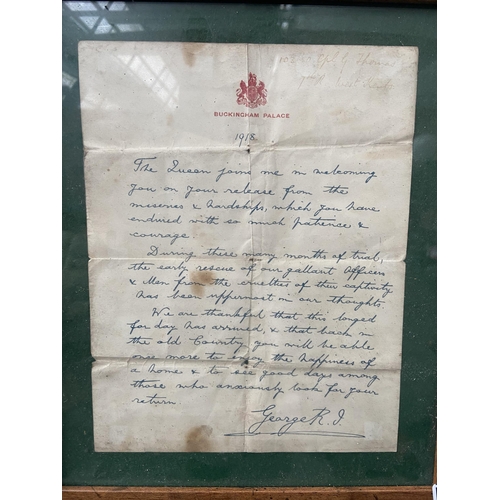 BUCKINGHAM PALACE
1918.
The Queen joins me in welcoming
you on your release from the
miseries & hardships, which you have
endured with so much patience &
courage.
During these many months of trial,
the early rescue of our gallant Officers
& Men from the cruelties of their captivity
has been uppermost in our thoughts.
We are thankful that this longed
for day has arrived, & that back in
the old Country you will be able
once more to enjoy the happiness of
a home & to see good days among
those who anxiously look for your
return.
George R.I.